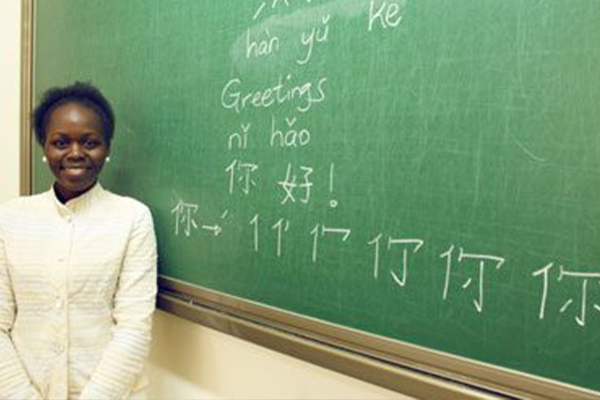 hàn yǔ kè
Greetings
nǐ hǎo
你 好！
你→ 亻